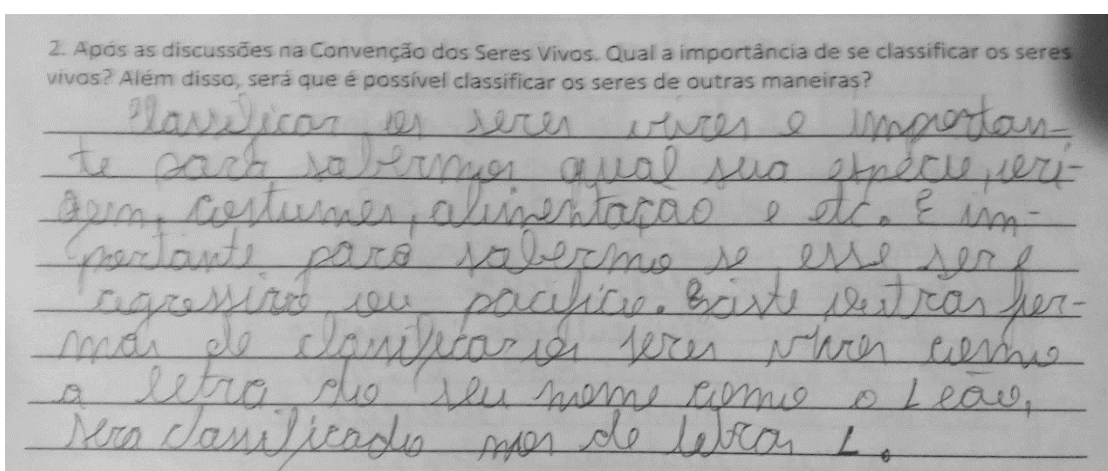 2. Após as discussões na Convenção dos Seres Vivos. Qual a importância de se classificar os seres
vivos? Além disso, será que é possível classificar os seres de outras maneiras?
Classificar os seres vivos e importan-
te para sabermos qual sua espécie, ori-
gem, costumes, alimentação e etc. E im-
portante para sabermo se esse ser é
agressivo ou pacifico. Existe outras for-
mas de classificar os seres vivos como
a letra do seu nome como o Leão,
sera classificado nos de letras L.